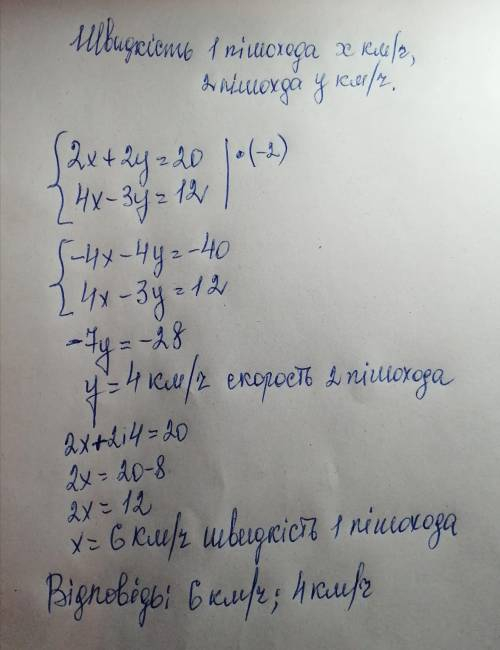 Швидкість 1 пішохода x км/г,
2 пішохда y км/г.
2x+2y=20 | •(-2)
4x-3y=12
-4x-4y=-40
4x-3y=12
-7y=-28
y=4 км/г скорость 2 пішохода
2x+2·4=20
2x=20-8
2x=12
x=6 км/г швидкість 1 пішохода
Відповідь: 6 км/г; 4 км/г